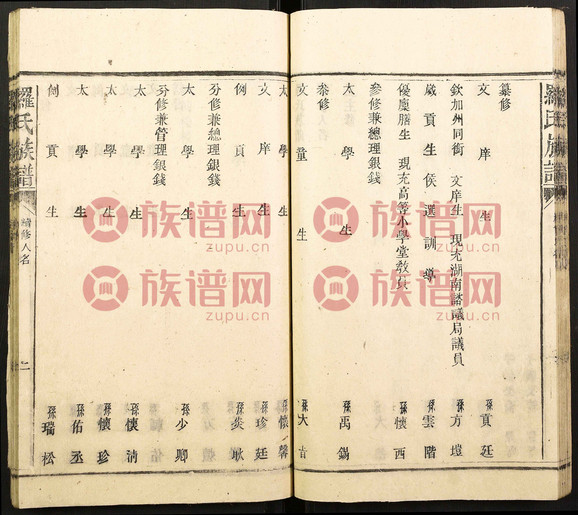 羅氏族譜
纂修
文庠生 孫貢廷
欽加州同銜 文庠生 現充湖南諮議局議員 孫方壇
歲貢生候選訓導 孫雲階
優廩膳生 現充高等小學堂教員 孫懷西
參修兼總理銀錢
太學生 孫禹錫
叅修
文童生 孫大吉
太學生 孫懷馨
文庠生 孫珍廷
例貢生 孫炎耿
分修兼總理銀錢
太學生 孫少卿
分修兼管理銀錢
太學生 孫懷清
太學生 孫懷珍
太學生 孫佑丞
例貢生 孫瑞松
羅氏族譜 續修人名 二
族谱网
zupu.cn
族谱网
zupu.cn
族谱网
zupu.cn
族谱网
zupu.cn